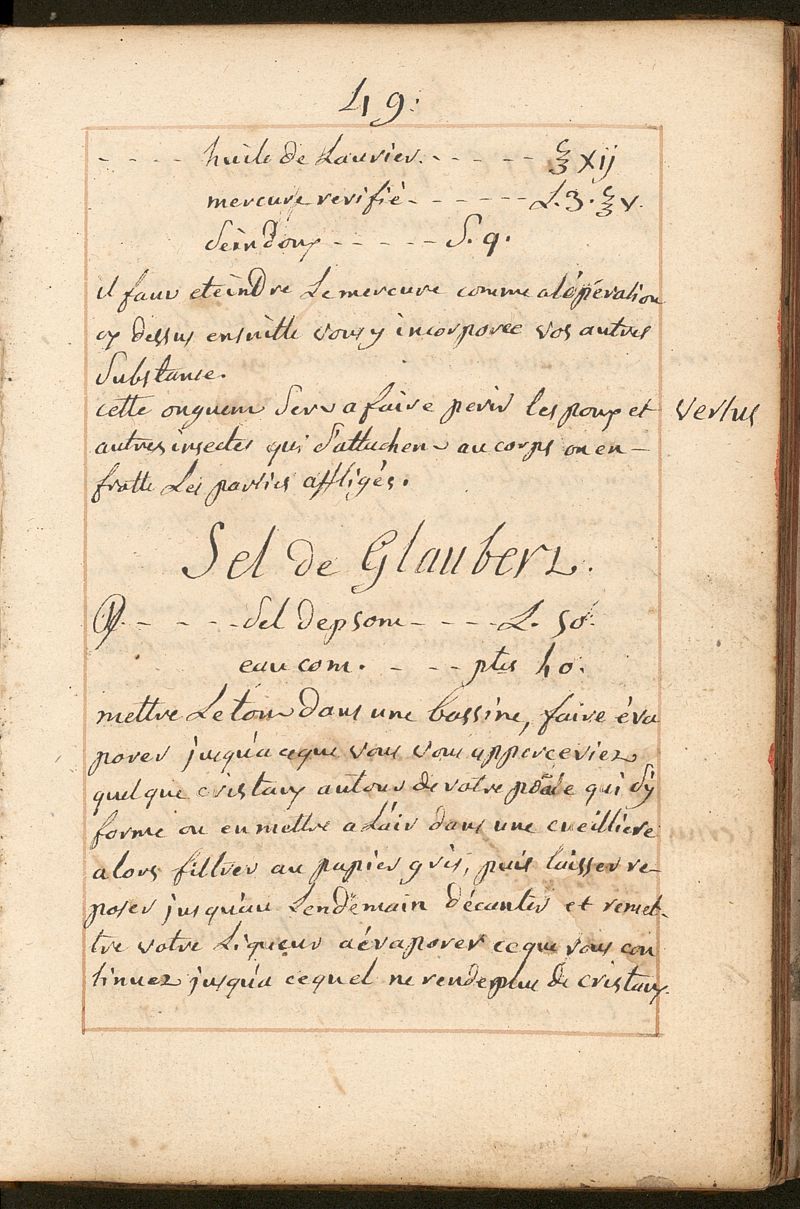 49:
- - - - huile de Laurier. - - - - - ℥ Xij
mercure revifié - - - - - - L. 3. ℥ v.
Seindoux - - - - - S. q.
il faut eteindre Le mercure comme a lópération
cy dessus ensuitte vous y incorporée vos autres
Substance.
cette onguent Sert a faire perir les poux et
vertus
autres insectes qui S'attachent au corps on en -
frotte Les parties affligés.
Sel de Glauberz.
- - - - - Sel depsom - - - - L. 50.
eau com. - - - ptes 40.
mettre Le tout dans une bassine, faire éva
porer jusqu'a ceque vous vous apperceviez
quelque cristaux autour de votre poële qui S'y
forme ou en mettre a L'air dans une cueilliere
alors filtrer au papier gris, puis laisser re-
poser jusqu'au Lendemain décanter et remet-
tre votre Liqueur a évaporer ceque vous con
tinuez jusqu'a cequel ne rende plue de cristaux.